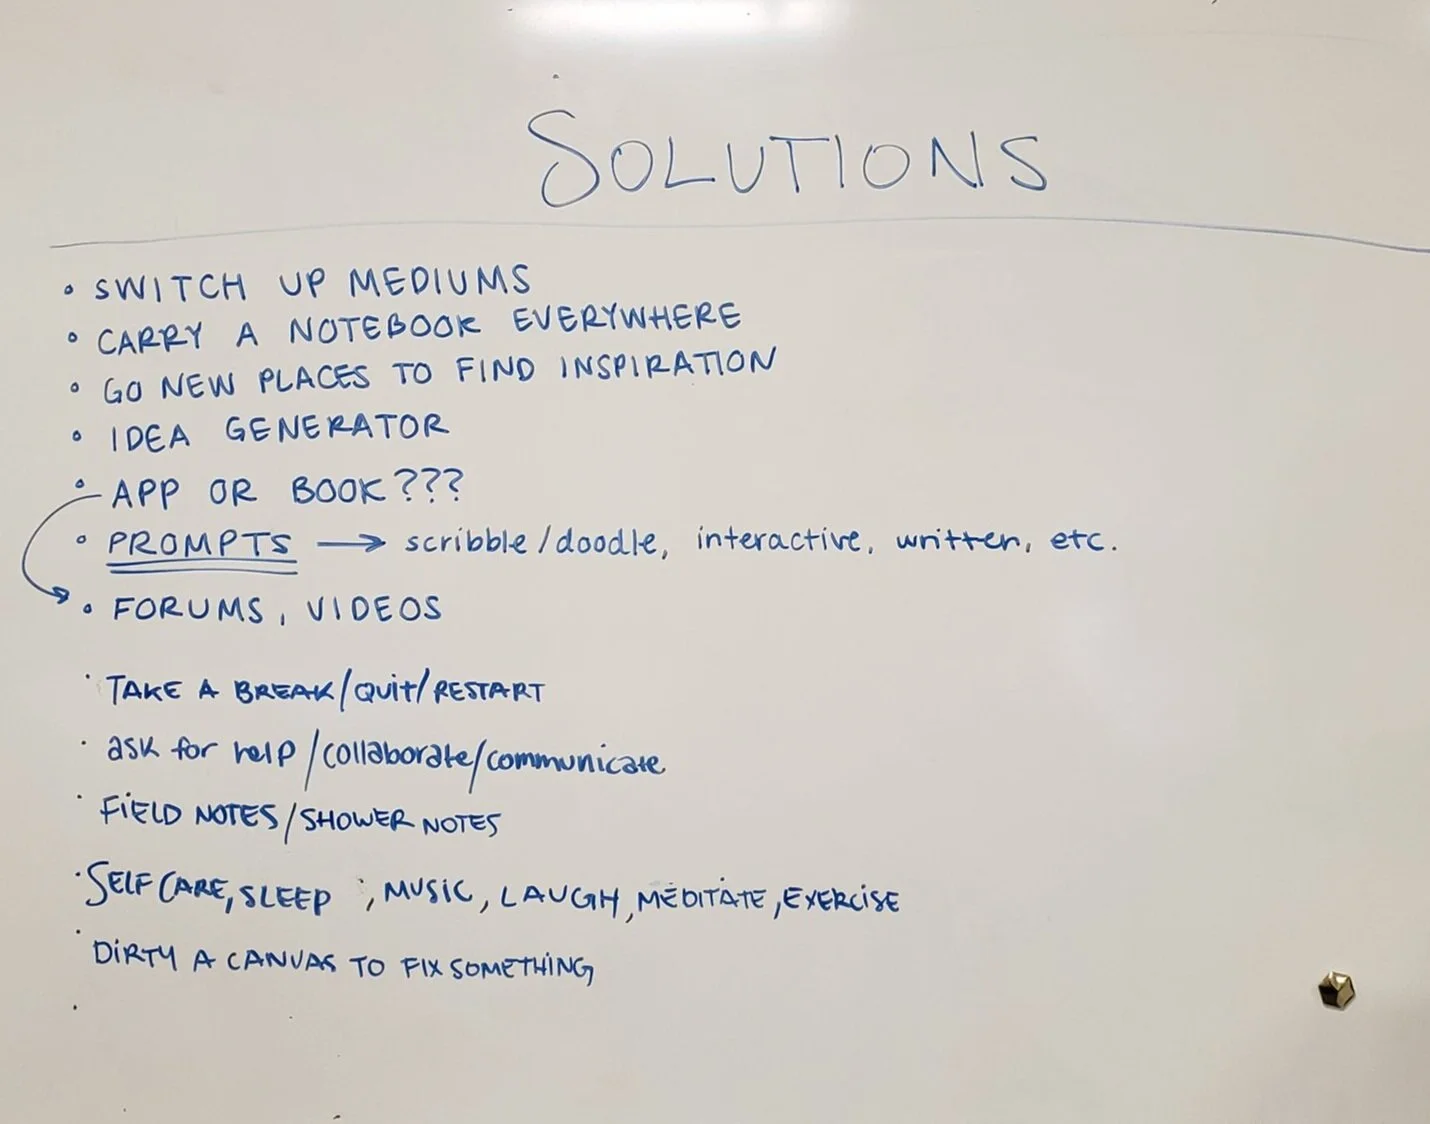 SOLUTIONS
• SWITCH UP MEDIUMS
• CARRY A NOTEBOOK EVERYWHERE
• GO NEW PLACES TO FIND INSPIRATION
• IDEA GENERATOR
• APP OR BOOK???
• PROMPTS → scribble/doodle, interactive, written, etc.
• FORUMS, VIDEOS
• TAKE A BREAK/QUIT/RESTART
• ask for help/collaborate/communicate
• FIELD NOTES/SHOWER NOTES
• SELF CARE, SLEEP, MUSIC, LAUGH, MEDITATE, EXERCISE
• DIRTY A CANVAS TO FIX SOMETHING
•